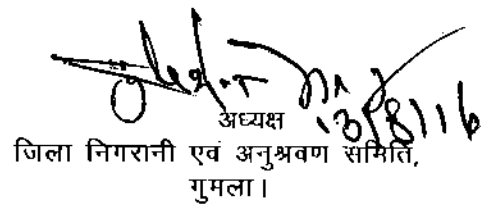 13/8/16
अध्यक्ष
जिला निगरानी एवं अनुश्रवण समिति,
गुमला।